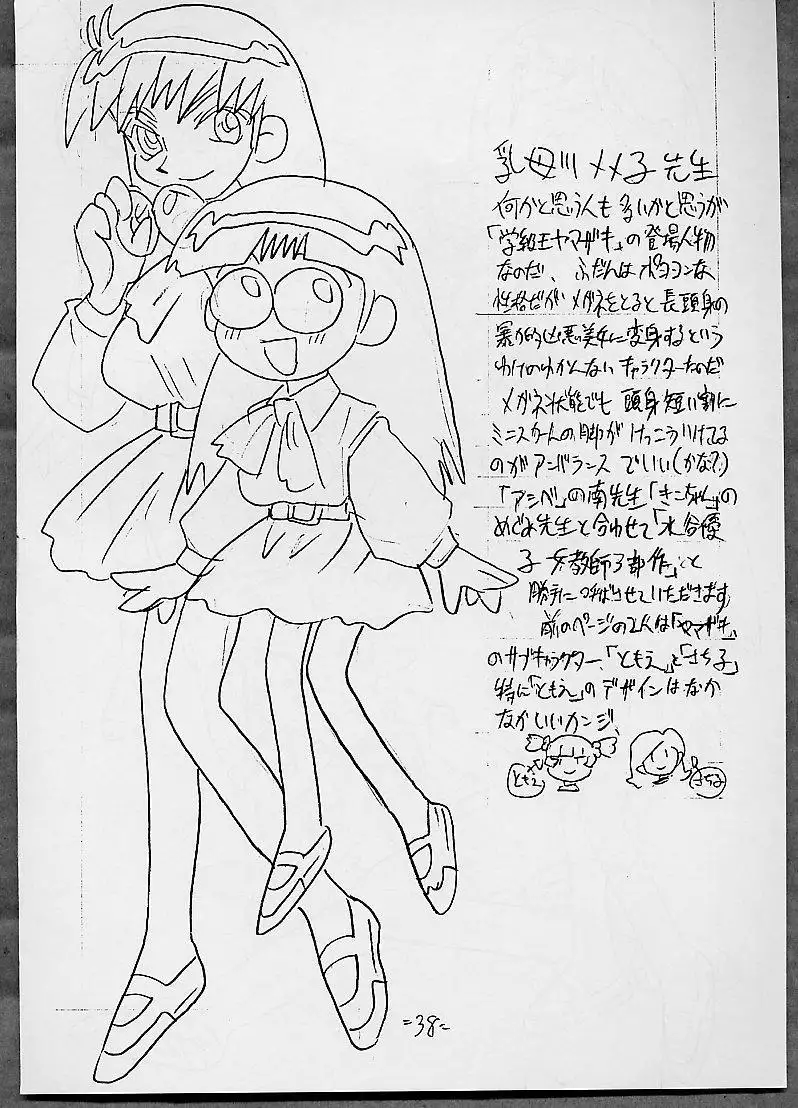 乳母川メメ子先生
何かと思う人も多いかと思うが
「学級王ヤマザキ」の登場人物
なのだ、ふだんはポヨヨンな
性格だがメガネをとると長頭身の
暴力的凶悪美女に変身するという
わけのわかんないキャラクターなのだ
メガネ状態でも頭身短い割に
ミニスカートの脚がけっこういけてる
のがアンバランスでいい(かな?)
「アシベ」の南先生「きこちゃん」の
めぐみ先生と合わせて「水谷優
子女教師3部作」と
勝手に呼ばせていただきます
前のページの2人は「ヤマザキ」
のサブキャラクター、「ともえ」と「さち子」
特に「ともえ」のデザインはなか
なかいいカンジ
ともえ
さち子
=38=